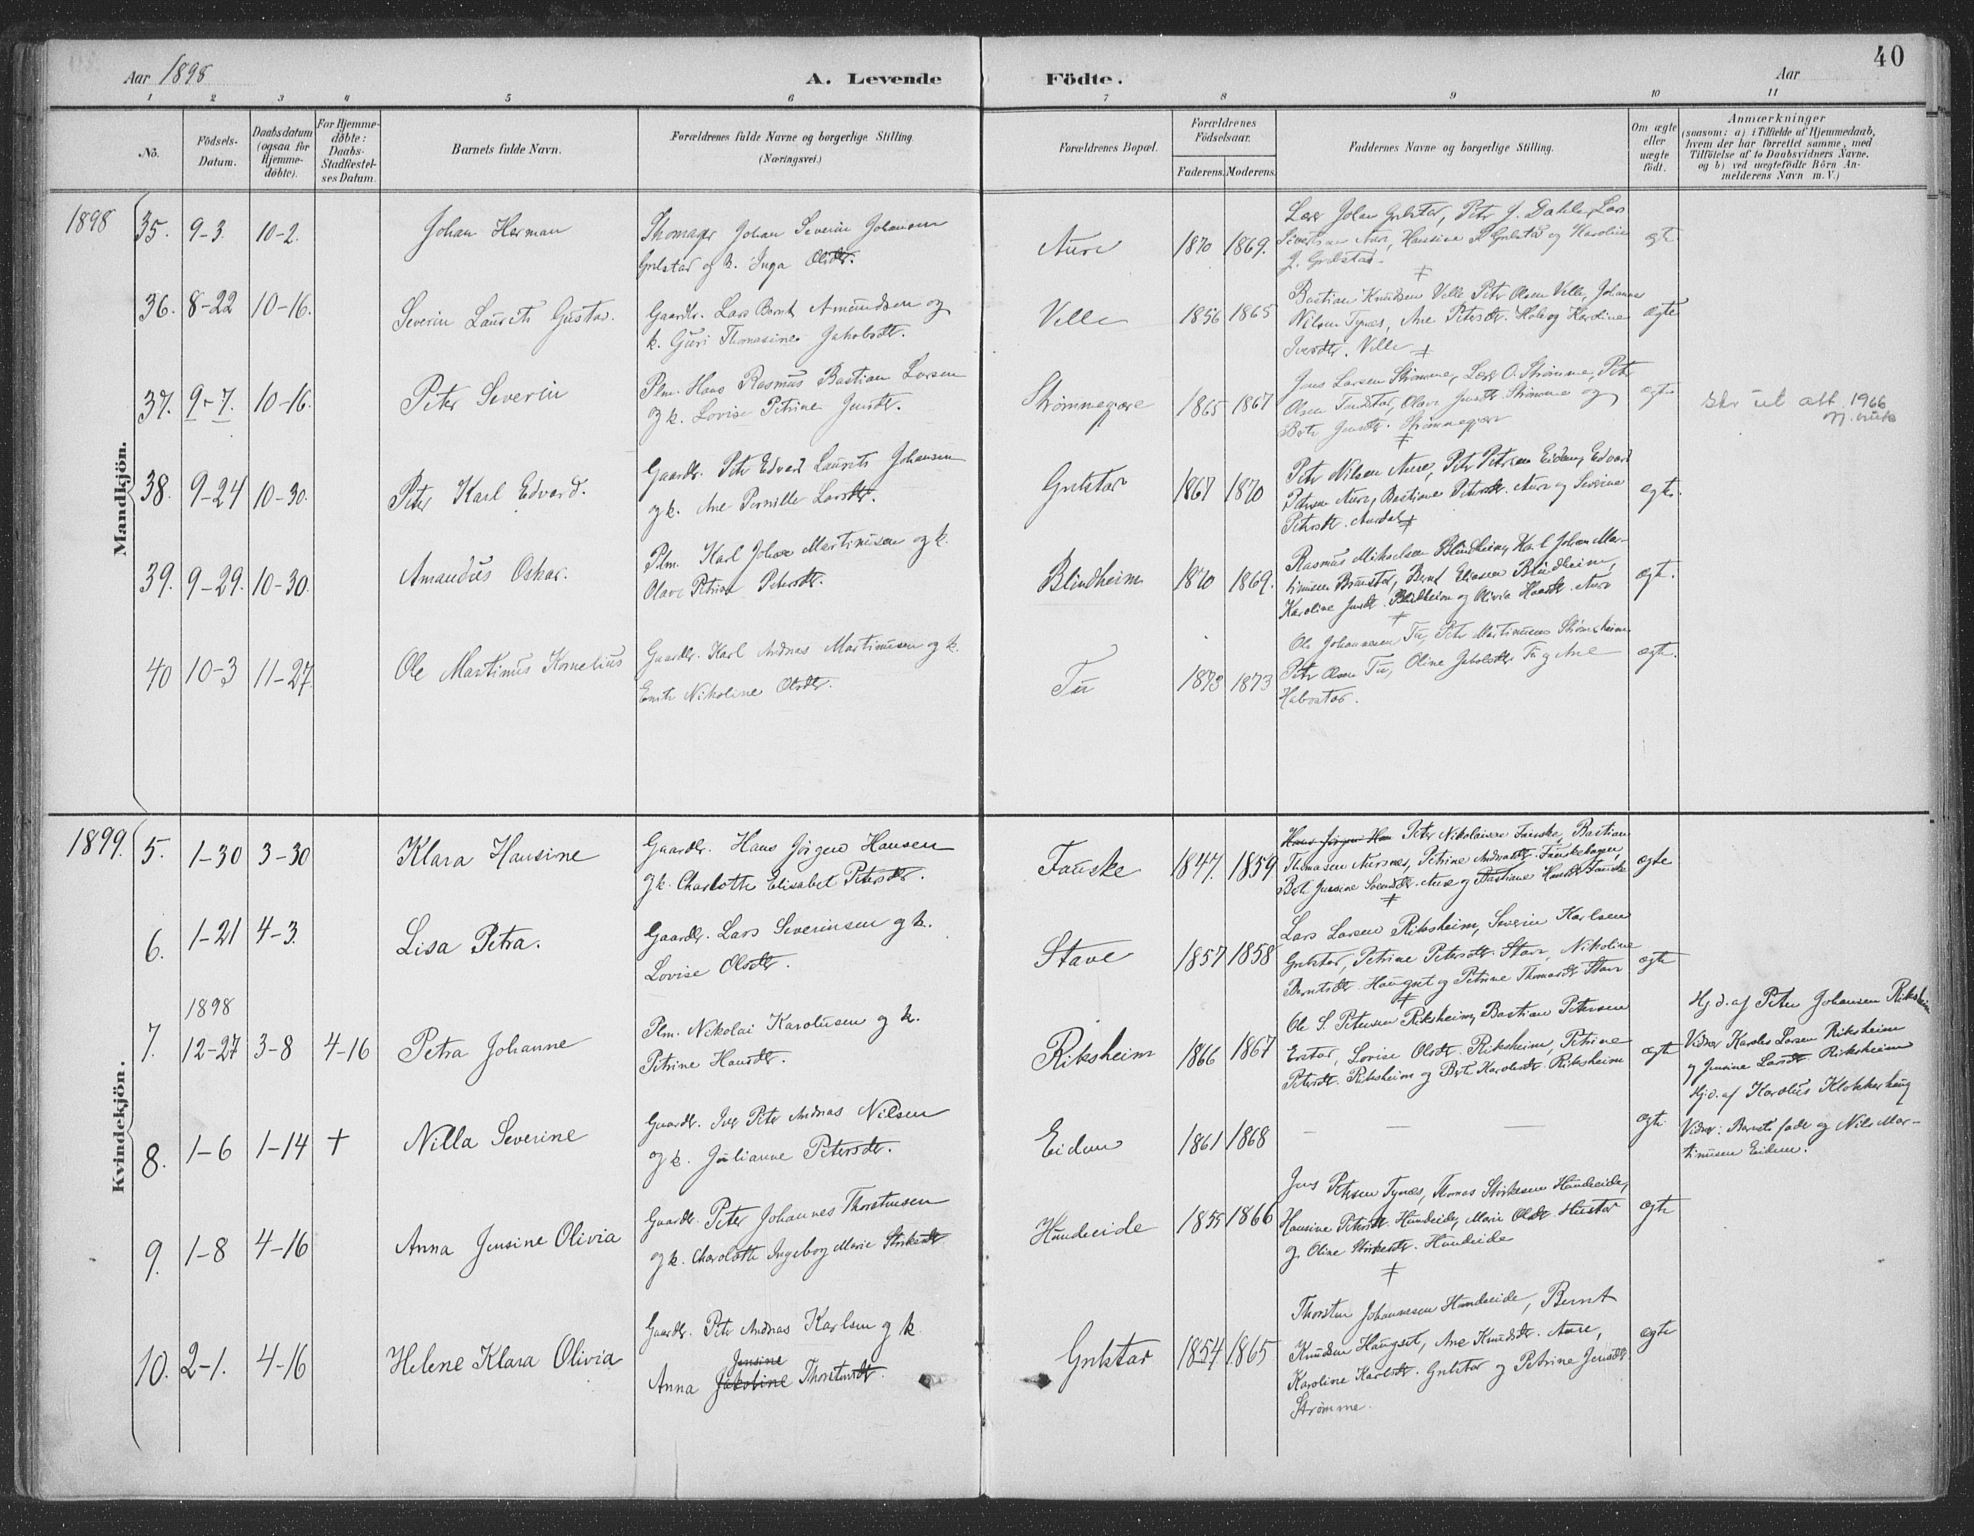 40
Aar 1898
A. Levende
Födte.
Aar
1 2 3 4 5 6 7 8 9 10 11
No.
Födsels-Datum.
Daabsdatum (ogsaa for Hjemme-döbte).
For Hjemme-döbte: Daabs-Stadfæstel-ses Datum.
Barnets fulde Navn.
Forældrenes fulde Navne og borgerlige Stilling.
(Næringsvei.)
Forældrenes Bopæl.
Forældrenes Födselsaar.
Faderens. Moderens.
Faddernes Navne og borgerlige Stilling.
Om ægte eller uægte födt.
Anmærkninger
(saasom: a) i Tilfælde af Hjemmedaab,
hvem der har forrettet samme, med
Tilföielse af to Daabsvidners Navne,
og b) ved uægtefödte Börn An-
melderens Navn m. V.)
Mandkjön.
1898
35. 9-3. 10-2.
Johan Herman
Johan Severin Johansen
Gjelstar og k. Inga Olsdtr.
Aure
1870 1869.
36. 8-22 10-16.
Severin Laurits Gustav.
Gaardbr. Lars Bernt Amundsen og
k. Guri Thomasine Jakobsdtr.
Velle
1856 1865
Bastian Knudsen Velle, Peter Olsen Velle, Johanne
Nilsen Tynes, Ane Petersdtr. Hole og Karoline
Iversdtr. Velle
ægte
37. 9-7. 10-16.
Peter Severin
Plm. Hans Rasmus Bastian Larsen
og k. Lovise Petrine Jensdtr.
Strømmegjære
1865 1867
Jens Larsen Strømme, Lars O. Strømme, Peter
Olsen Tandstad, Olave Jensdtr. Strømme og
Berte Jensdtr. Strømmegjære
ægte
skr ut att. 1966
38. 9-24 10-30.
Peter Karl Edvard.
Gaardbr. Petr Edvard Laurits Johansen
og k. Ane Pernille Larsdtr.
Gjelstar
1867 1870
Petr Nilsen Aure, Petr Petersen Eidem, Edvard
Petersen Aure, Bastiane Petersdtr. Aure og Severine
Petersdtr. Aurdal
ægte.
39. 9-29. 10-30.
Amandus Oskar.
Plm. Karl Johan Martinusen og k.
Olave Petrine Petersdtr.
Blindheim
1870 1869.
Rasmus Mikaelsen Blindheim, Karl Johan Mar-
tinusen Brunstar, Bernt Eliasen Blindheim,
Karoline Jensdtr. Blindheim og Olivia Hansdtr. Aure
ægte.
40 10-3 11-27.
Ole Martinus Kornelius
Gaardbr. Karl Andreas Martinusen og k.
Nikoline Olsdtr.
Tu
1873 1873
Ole Johannesen Tu, Petr Martinusen Strømsheim
Petr Olsen Tu, Oline Jakobsdtr. Tu og Ane
ægte.
Kvindekjön.
1899.
5. 1-30 3-30
Klara Hansine
Gaardbr. Hans Jörgen Hansen
og k. Charlotte Elisabet Petersdtr.
Fauske
1847. 1859.
Peter Nikolaisen Fauske, Bastian
Thomasen Aursnes, Petrine Andreasdtr. Fauskehagen,
Berte Jensine Svendsdtr. Aure og Bastiane Hansdtr. Fauske
ægte
6. 1-21 4-3.
Lisa Petra.
Gaardbr. Lars Severinsen og k.
Lovise Olsdtr.
Stave
1857 1858
Lars Larsen Riksheim, Severin Karlsen
Gjelstar, Petrine Petersdtr. Stave, Nikoline
Berntsdtr. Haugset og Petrine Thomasdtr Stave
ægte
1898
7. 12-27 3-8 4-16
Petra Johanne
Plm. Nikolai Karolusen og k.
Petrine Hansdtr.
Riksheim
1866 1867
Ole S. Petersen Riksheim, Bastian Petersen
Erstar, Lovise Olsdtr. Riksheim, Petrine
Petersdtr. Riksheim og Berte Karolusdtr. Riksheim
ægte
Hj.d. af Peter Johansen Riksheim
Vidner Karolus Larsen Riksheim
og Jensine Larsdtr Riksheim
8. 1-6 1-14 +
Nilla Severine
Gaardbr. Iver Peter Andreas Nilsen
og k. Julianne Petersdtr.
Eidem
1861 1868
— — —
ægte.
Hj.d. af Karolus Klokkerhaug
Vidner: Barnets fader og Nils Mar-
tinusen Eidem.
9. 1-8 4-16
Anna Jensine Olivia
Gaardbr. Peter Johannes Thorstensen
og k. Charolotte Ingeborg Marie Storkersdtr.
Hundeide
1855 1866
Jens Petersen Tynes, Thomas Storkersen Hundeide,
Hansine Petersdtr. Hundeide, Marie Olsdtr. Hustar
og Oline Storkersdtr. Hundeide
ægte
10. 2-1. 4-16
Helene Klara Olivia
Gaardbr. Petr Andreas Karlsen og k.
Jensine
Anna Jakobine Thorstensdtr.
Gjelstar
1854 1865
Thorsten Johannesen Hundeide, Bernt
Knudsen Haugset, Ane Knudsdtr. Aure,
Karoline Karlsdtr. Gjelstar og Petrine Jensdtr.
Strømme.
ægte